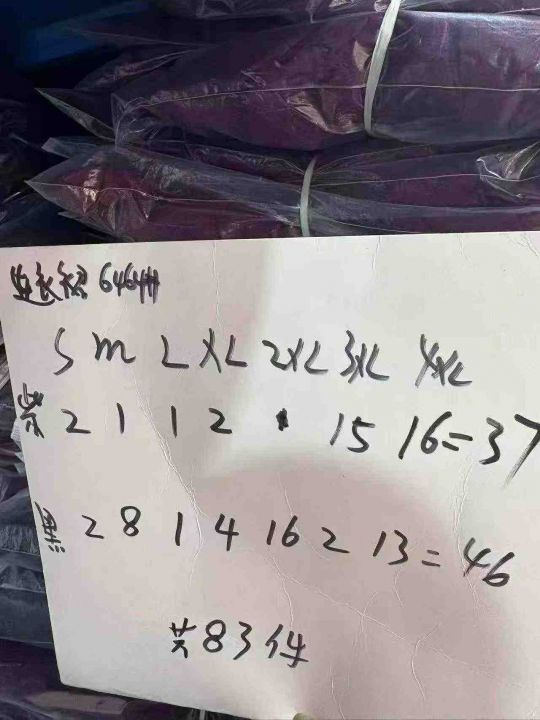 连衣裙 6464#
S M L XL 2XL 3XL 4XL
紫 2 1 1 2 · 15 16=37
黑 2 8 1 4 16 2 13=46
共83件